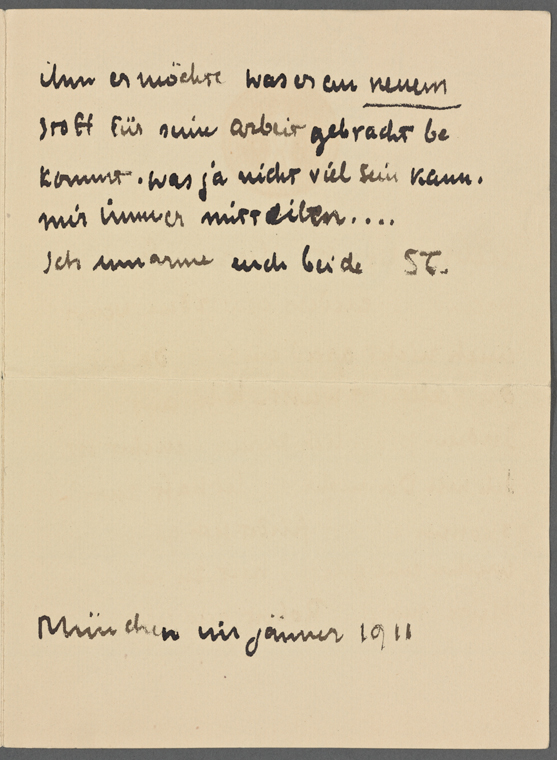 ihm er möchte was er an neuem
stoff für seine arbeit gebracht be
kommt. was ja nicht viel sein kann.
mir immer mitteilen....
Ich umarme euch beide ST.
München im jänner 1911